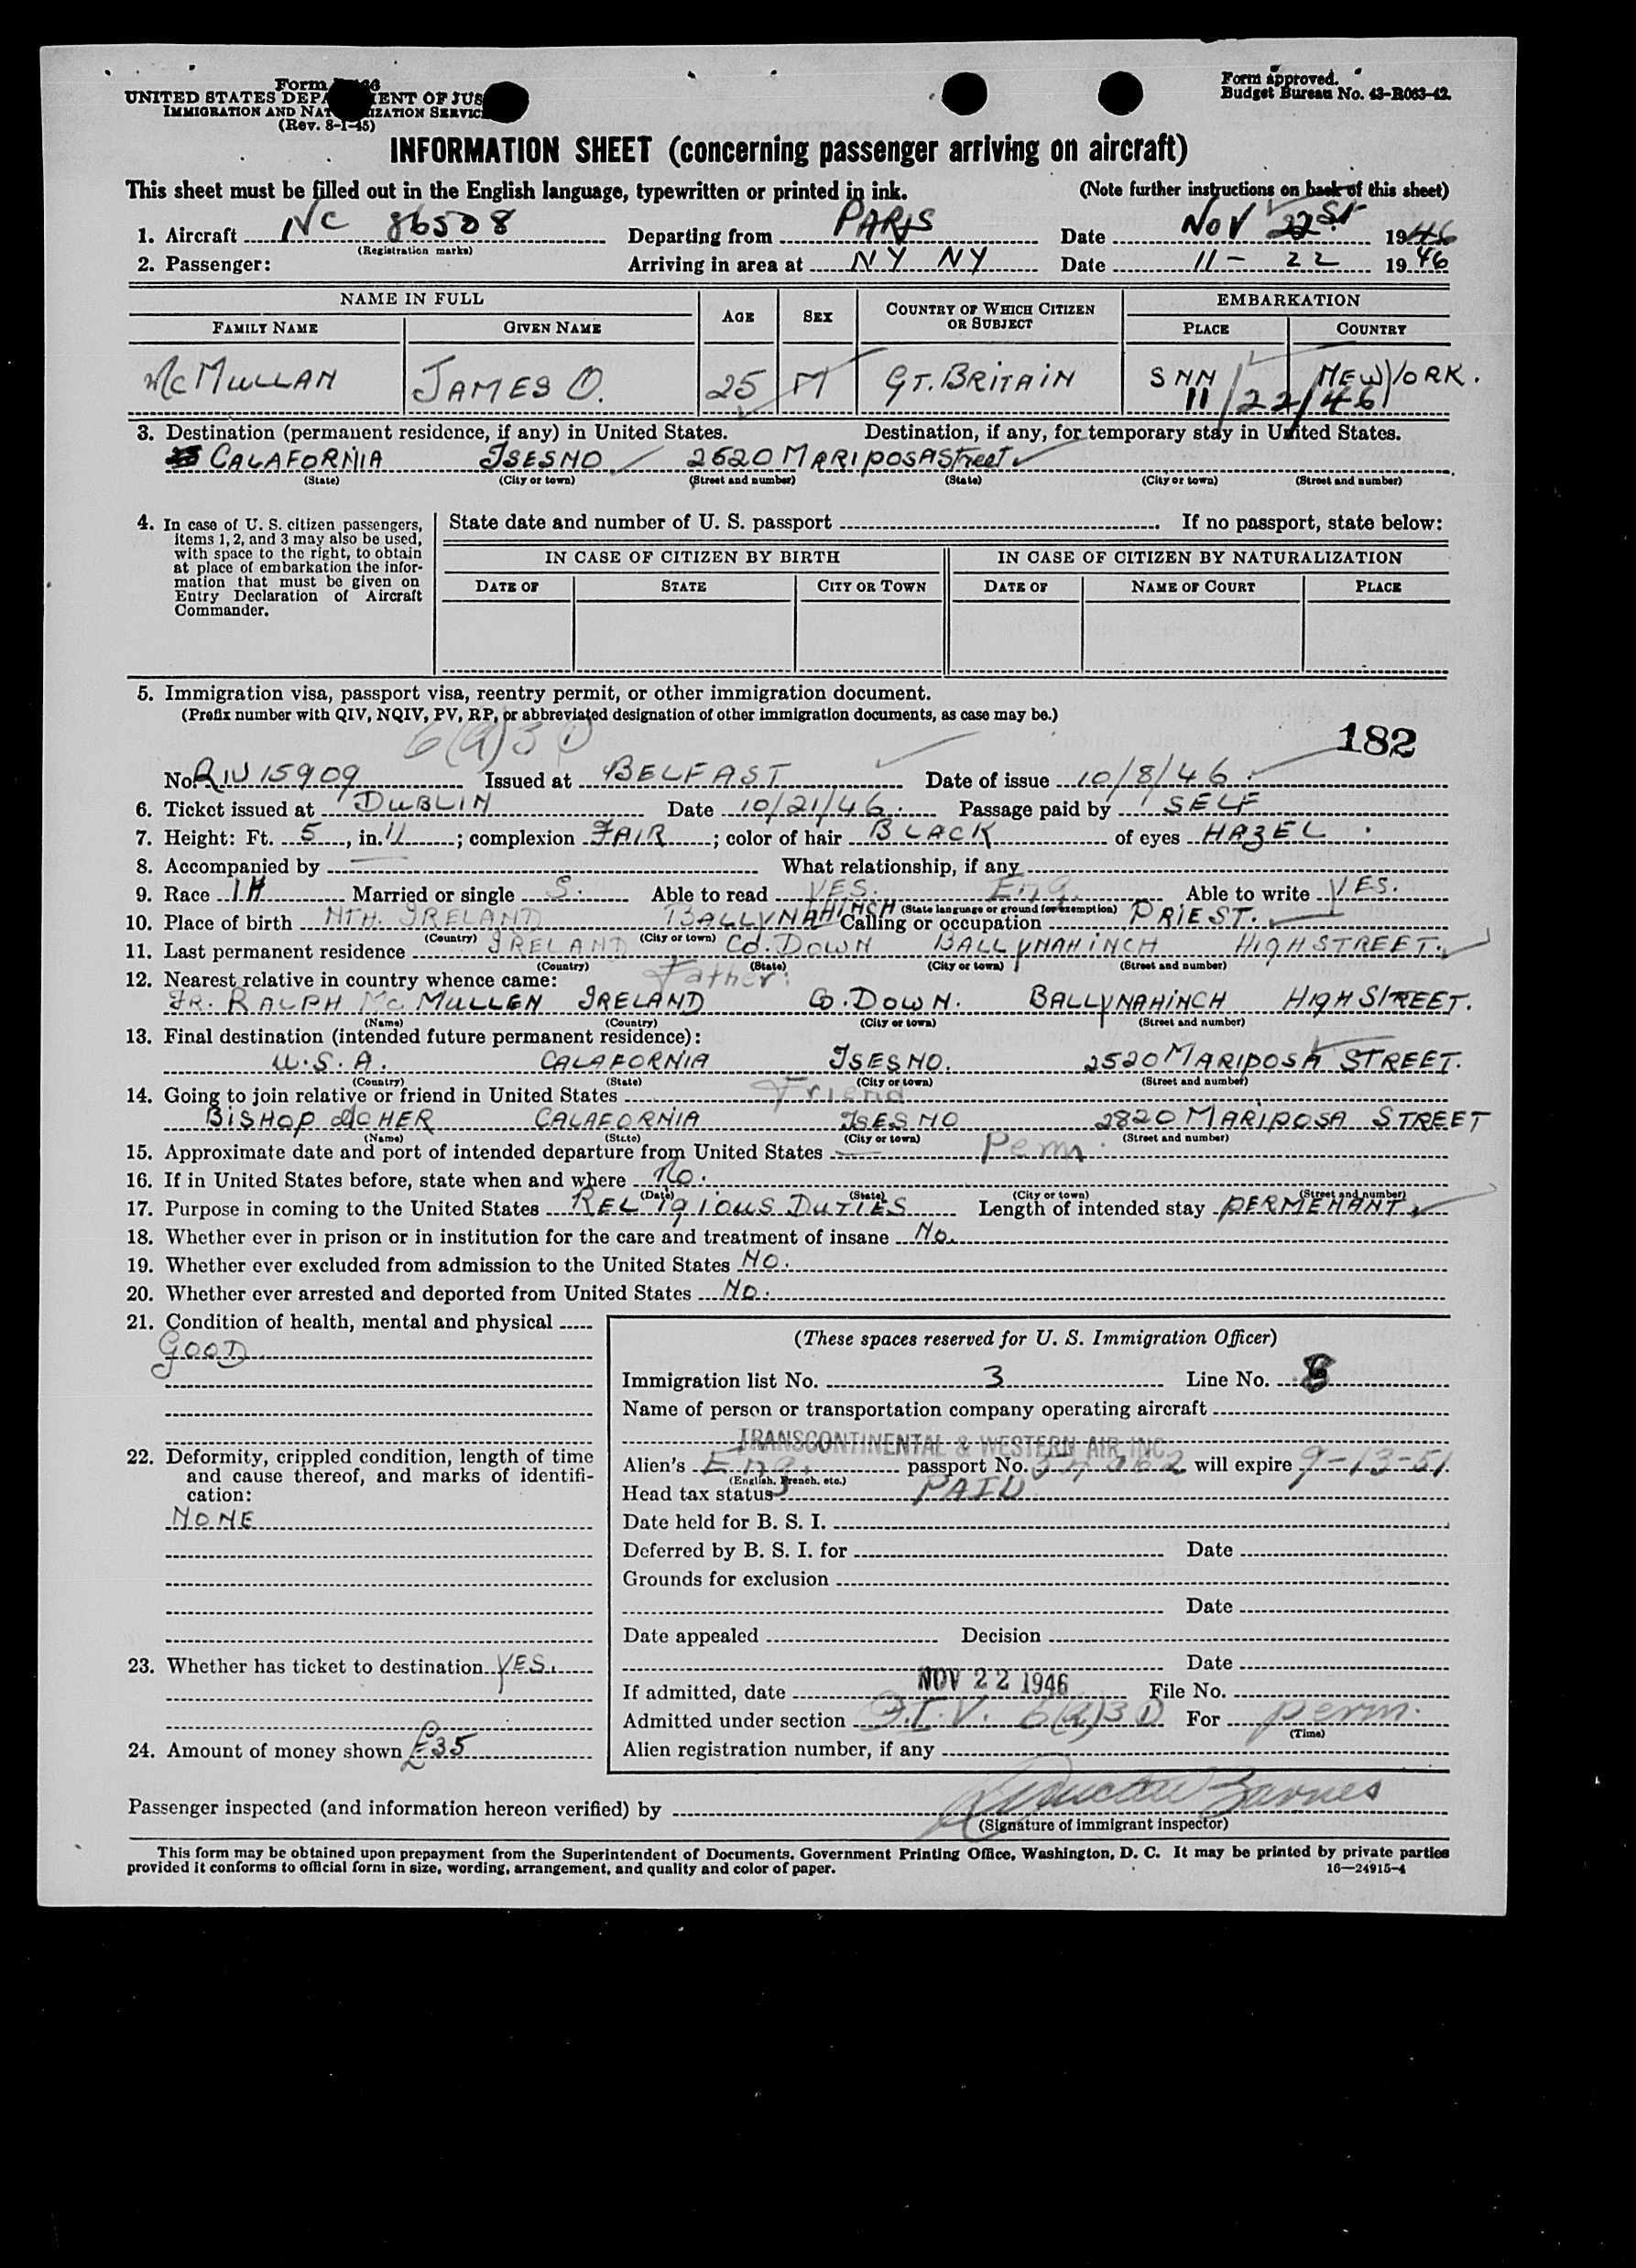 Form
UNITED STATES DEPA ENT OF JUS
IMMIGRATION AND NAT IZATION SERVIC
(Rev. 8-1-45)
Form approved.
Budget Bureau No. 43-R063-42.
INFORMATION SHEET (concerning passenger arriving on aircraft)
This sheet must be filled out in the English language, typewritten or printed in ink. (Note further instructions on back of this sheet)
1. Aircraft NC 86508 Departing from PARIS Date NOV 22 1946
(Registration marks)
2. Passenger: Arriving in area at NY NY Date 11-22 1946
NAME IN FULL AGE SEX COUNTRY OF WHICH CITIZEN OR SUBJECT EMBARKATION
FAMILY NAME GIVEN NAME PLACE COUNTRY
McMULLAN JAMES O. 25 M GT. BRITAIN SNN NEW YORK.
11/22/46
3. Destination (permanent residence, if any) in United States. Destination, if any, for temporary stay in United States.
CALAFORNIA 2520 MARIPOSA Street
(State) (City or town) (Street and number) (State) (City or town) (Street and number)
4. In case of U. S. citizen passengers, items 1, 2, and 3 may also be used, with space to the right, to obtain at place of embarkation the information that must be given on Entry Declaration of Aircraft Commander.
State date and number of U. S. passport If no passport, state below:
IN CASE OF CITIZEN BY BIRTH IN CASE OF CITIZEN BY NATURALIZATION
DATE OF STATE CITY OR TOWN DATE OF NAME OF COURT PLACE
5. Immigration visa, passport visa, reentry permit, or other immigration document.
(Prefix number with QIV, NQIV, PV, RP, or abbreviated designation of other immigration documents, as case may be.)
6(a)3 182
No. QIV 15909 Issued at BELFAST Date of issue 10/8/46.
6. Ticket issued at DUBLIN Date 10/21/46. Passage paid by SELF
7. Height: Ft. 5, in. 11; complexion FAIR; color of hair BLACK of eyes HAZEL.
8. Accompanied by What relationship, if any
9. Race Married or single S. Able to read YES. Eng. Able to write YES.
(State language or ground for exemption)
10. Place of birth NTH. IRELAND BALLYNAHINCH Calling or occupation PRIEST.
(Country) (City or town)
11. Last permanent residence IRELAND CO. DOWN BALLYNAHINCH HIGH STREET.
(Country) (State) (City or town) (Street and number)
12. Nearest relative in country whence came: Father:
RALPH McMULLEN IRELAND CO. DOWN. BALLYNAHINCH HIGH STREET.
(Name) (Country) (City or town) (Street and number)
13. Final destination (intended future permanent residence):
U.S.A. CALAFORNIA 2520 MARIPOSA STREET.
(Country) (State) (City or town) (Street and number)
14. Going to join relative or friend in United States Friend
BISHOP CALAFORNIA 2820 MARIPOSA STREET
(Name) (State) (City or town) (Street and number)
15. Approximate date and port of intended departure from United States Perm
16. If in United States before, state when and where No.
(Date) (State) (City or town) (Street and number)
17. Purpose in coming to the United States RELIGIOUS DUTIES Length of intended stay PERMENANT
18. Whether ever in prison or in institution for the care and treatment of insane No.
19. Whether ever excluded from admission to the United States NO.
20. Whether ever arrested and deported from United States No.
21. Condition of health, mental and physical
GOOD
22. Deformity, crippled condition, length of time and cause thereof, and marks of identification:
NONE
23. Whether has ticket to destination YES.
24. Amount of money shown £35
(These spaces reserved for U. S. Immigration Officer)
Immigration list No. 3 Line No.
Name of person or transportation company operating aircraft
TRANSCONTINENTAL & WESTERN AIR, INC.
Alien's Eng. passport No. will expire 9-13-51.
(English, French, etc.)
Head tax status PAID
Date held for B. S. I.
Deferred by B. S. I. for Date
Grounds for exclusion
Date
Date appealed Decision
Date
If admitted, date NOV 22 1946 File No.
Admitted under section Q.I.V. 6(a)3 For perm.
(Time)
Alien registration number, if any
Passenger inspected (and information hereon verified) by Barnes
(Signature of immigrant inspector)
This form may be obtained upon prepayment from the Superintendent of Documents, Government Printing Office, Washington, D. C. It may be printed by private parties
provided it conforms to official form in size, wording, arrangement, and quality and color of paper. 16—24915-4